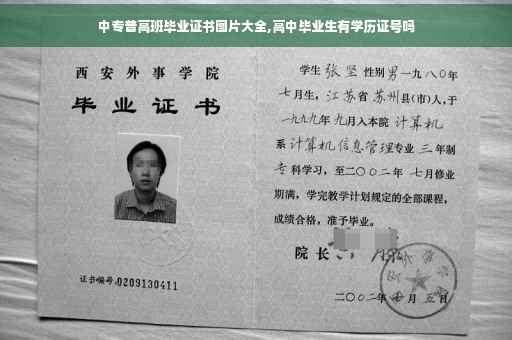 中专普高班毕业证书图片大全,高中毕业生有学历证号吗
西安外事学院
毕业证书
证书编号:0209130411
学生 张坚 性别 男 一九八〇年
七月生, 江苏省 苏州县(市)人,于
一九九九年 九月入本院 计算机
系 计算机信息管理专业 三 年制
专 科学习, 至二〇〇二年 七月修业
期满, 学完教学计划规定的全部课程,
成绩合格, 准予毕业。
院长
二〇〇二年 七 月 五 日